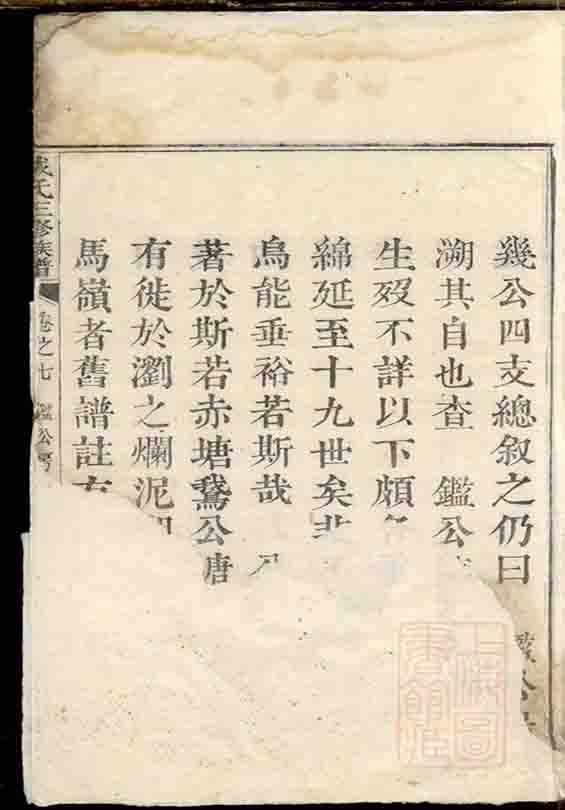 幾公四支總叙之仍曰
溯其自也查 鑑公
生殁不詳以下頗
綿延至十九世矣
烏能垂裕若斯哉
著於斯若赤塘鵞公唐
有徙於瀏之爛泥
馬嶺者舊譜註
氏三修族譜
卷之七 鑑公
上海圖書館藏